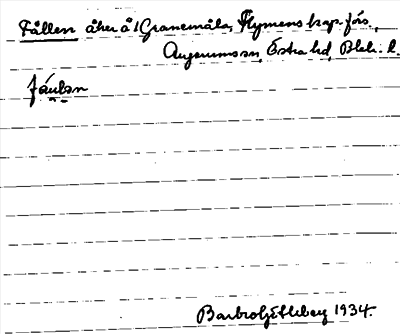 Fållen åker å 1 Granemåla, Flymens kap. förs.
Augerums sn, Östra hd, Blek. l.
fåulən
Barbro Göthberg 1934.